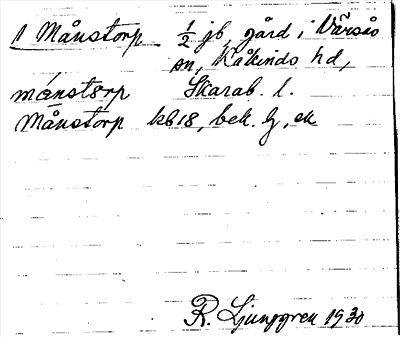 1 Månstorp ½ jb, gård i Värsås
sn, Kåkinds hd,
månstårp Skarab. l.
Månstorp kb 18, bek. lz, ek
R. Ljunggren 1930